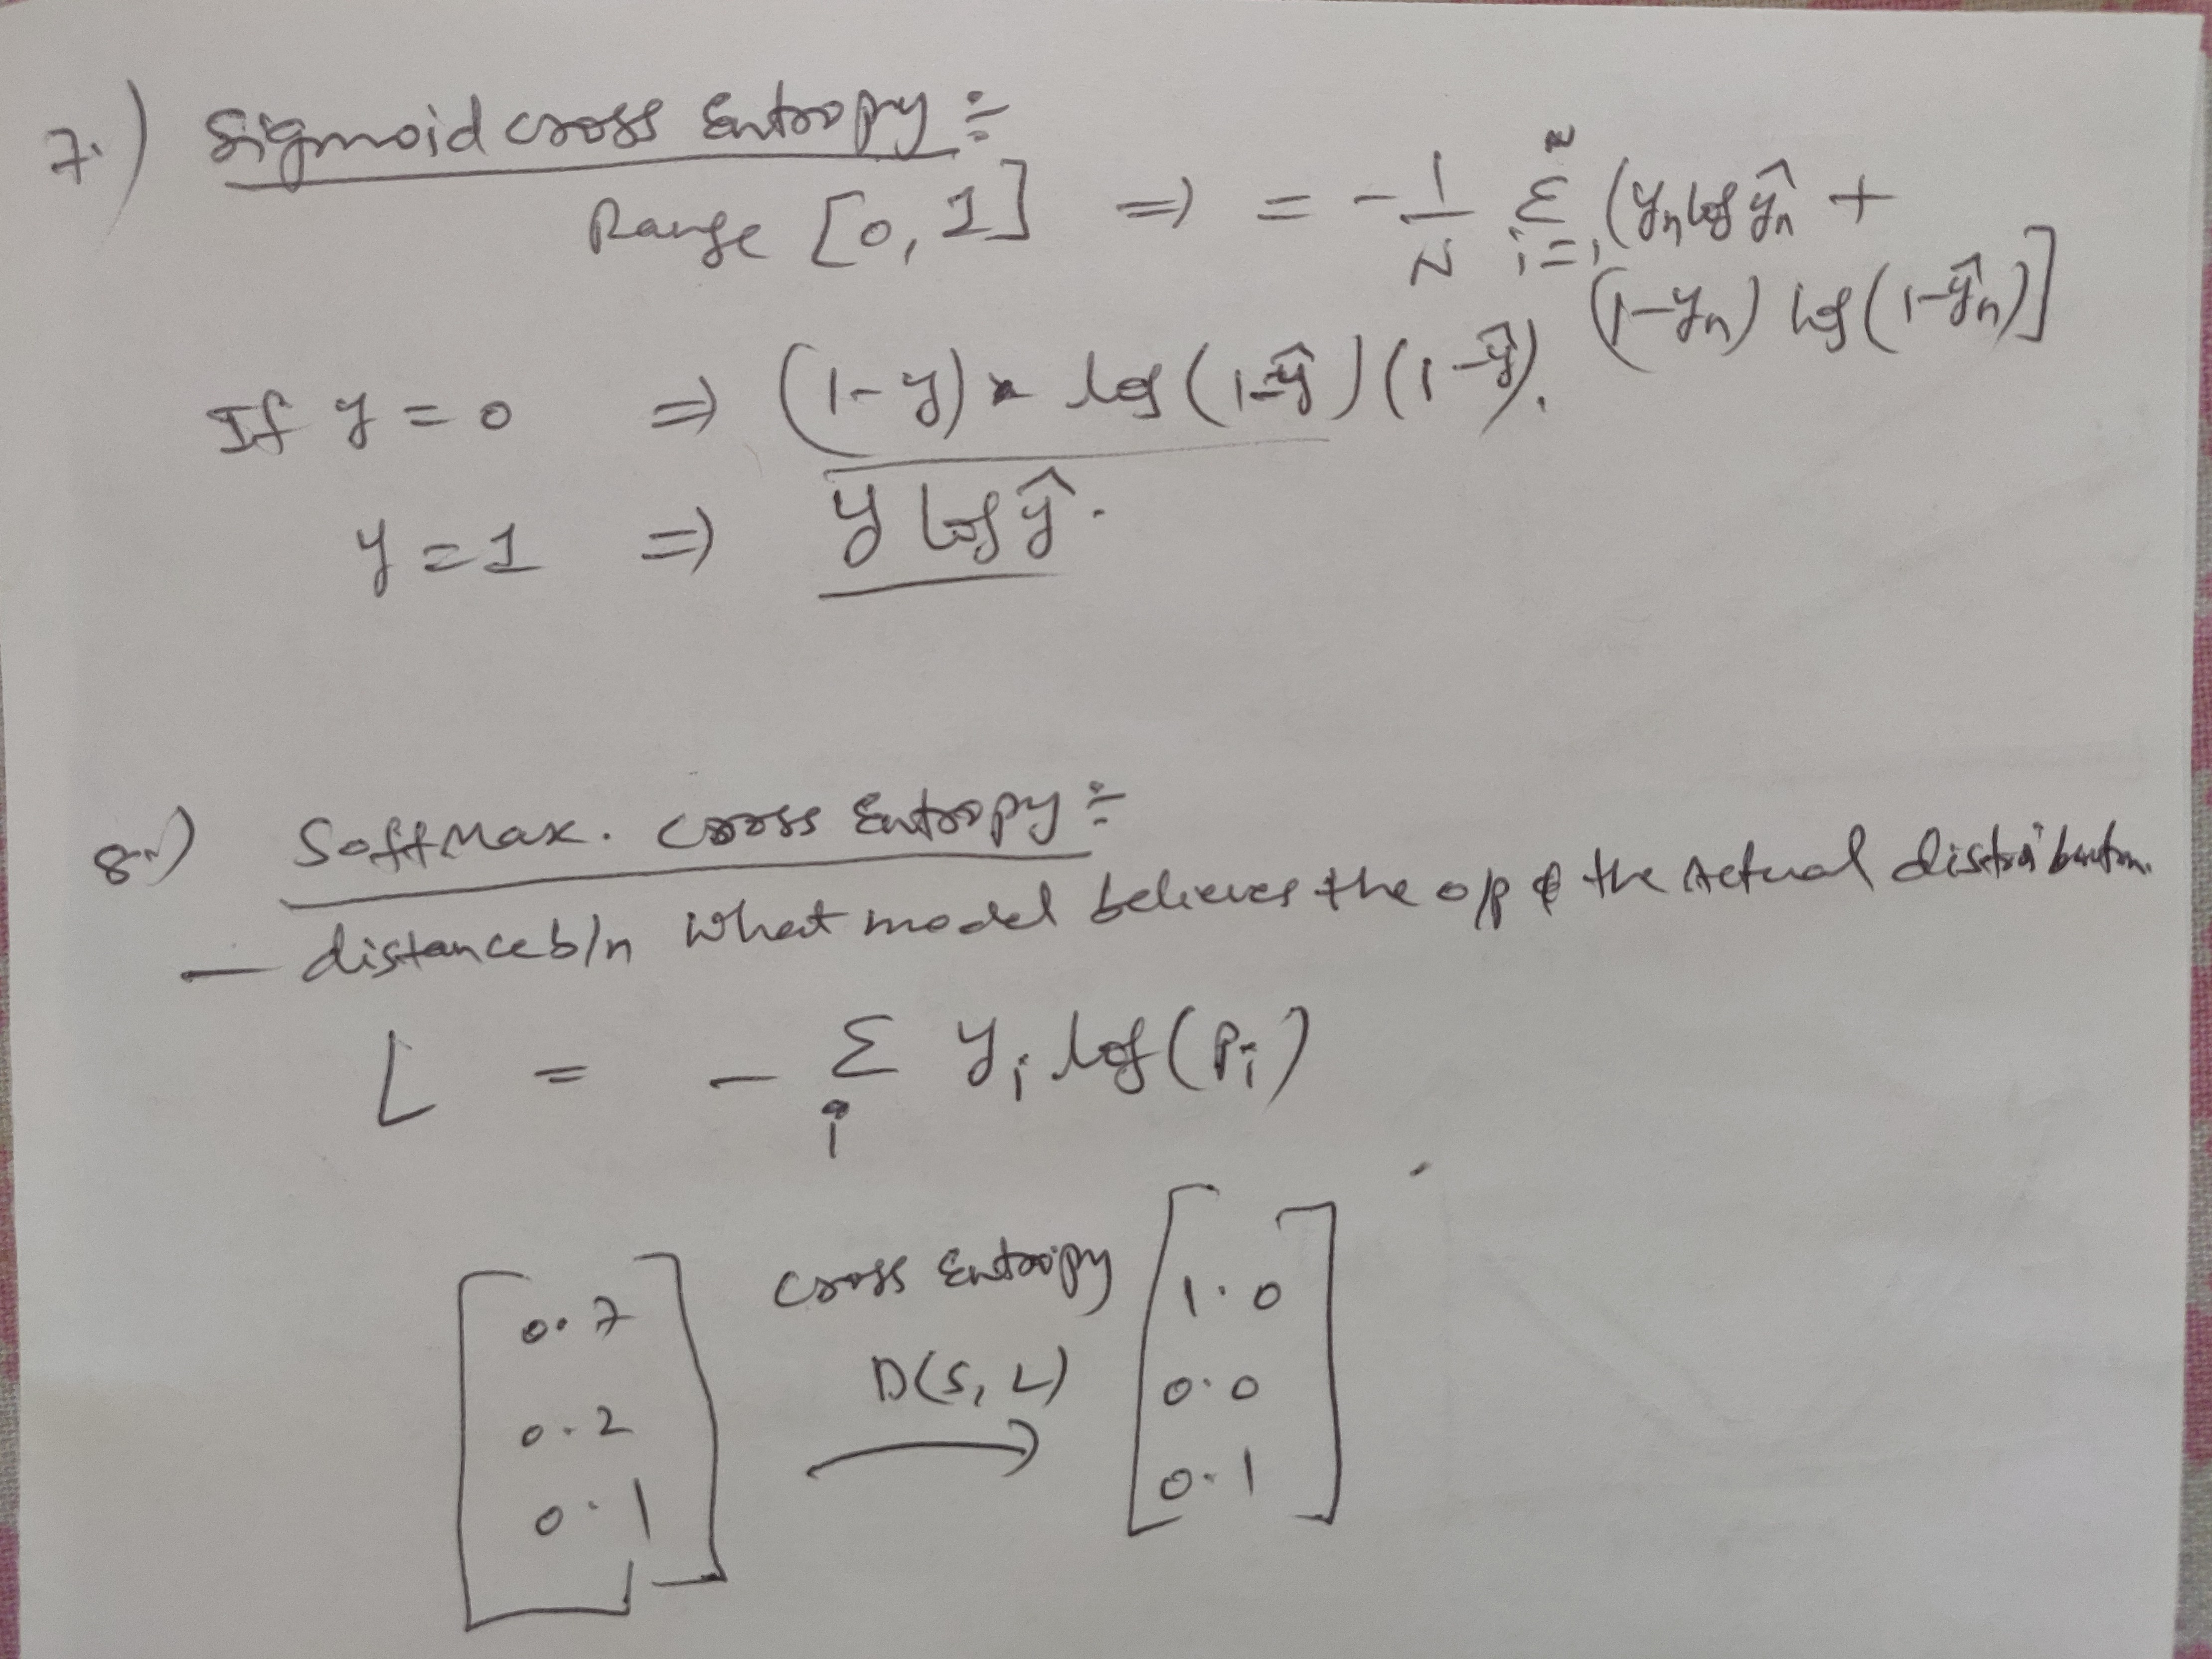 7.) Sigmoid cross Entropy :-
Range [0, 1] => = - 1/N Σ i=1 n (yn log ŷn +
(1-yn) log (1-ŷn)]
If y = 0 => (1-y) * log (1-ŷ) (1-ŷ).
y = 1 => y log ŷ.
8.) SoftMax. cross Entropy :-
— distance b/n What model believes the o/p & the Actual distribution.
L = - Σ i yi log (Pi)
Cross Entropy
D(S, L)
[0.7
0.2
0.1]
→
[1.0
0.0
0.1]